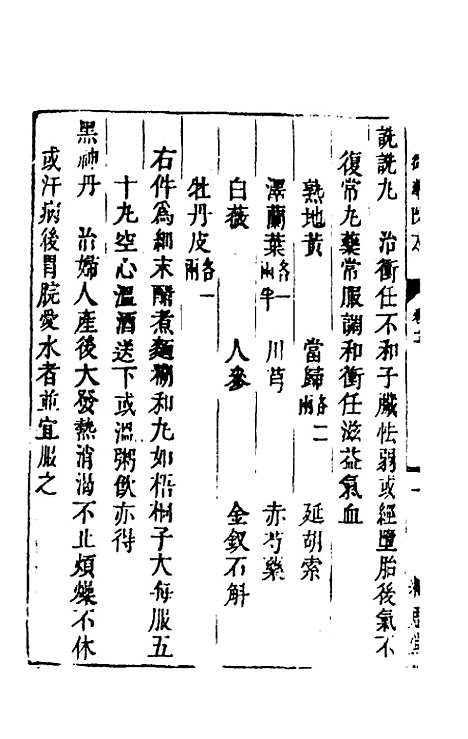 詵詵丸　治衝任不和子臟怯弱或經墮胎後氣不
復常丸藥常服調和衝任滋益氣血
熟地黃　當歸各二兩　延胡索
澤蘭葉各一兩半　川芎　赤芍藥
白薇　人參　金釵石斛
牡丹皮各一兩
右件爲細末醋煮麵糊和丸如梧桐子大每服五
十丸空心溫酒送下或溫粥飲亦得
黑神丹　治婦人產後大發熱消渴不止煩燥不休
或汗病後胃脘愛水者並宜服之